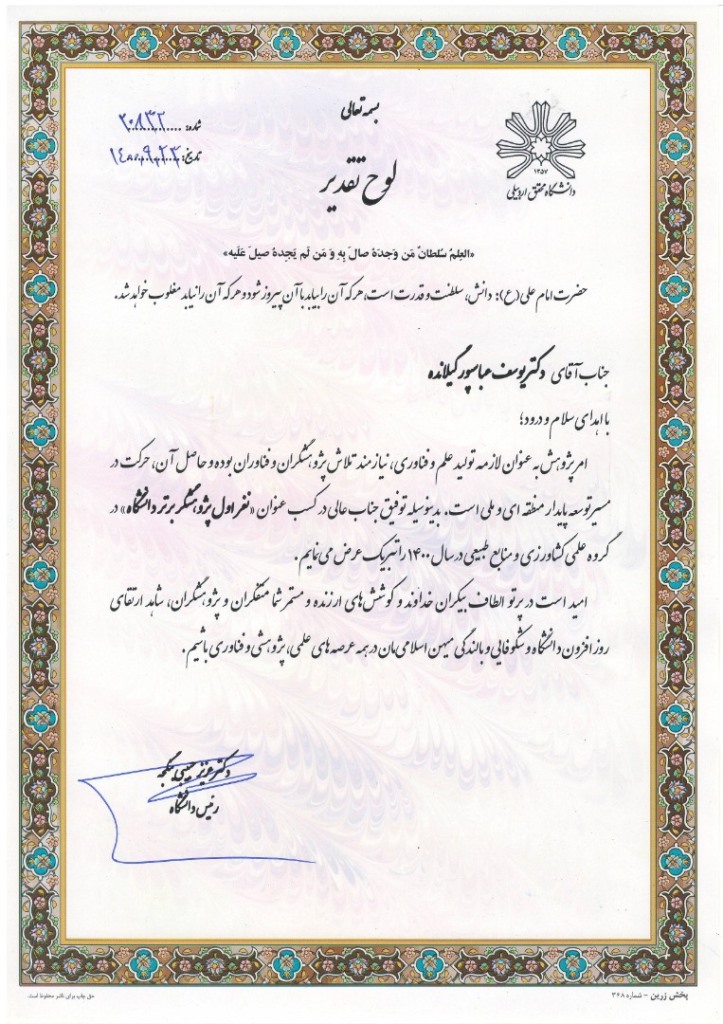 بسمه تعالی
۱۳۵۷
دانشگاه محقق اردبیلی
شماره: ۲۰۸۳۲
تاریخ: ۱۴۰۰/۹/۲۳
لوح تقدیر
«العِلمُ سُلطانٌ مَن وَجَدَهُ صالَ بِهِ وَ مَن لَم یَجِدهُ صیلَ عَلَیه»
حضرت امام علی (ع): دانش، سلطنت و قدرت است، هر که آن را بیابد با آن پیروز شود و هر که آن را نیابد مغلوب خواهد شد.
جناب آقای دکتر یوسف عباسپور گیلانده
با اهدای سلام و درود؛
امر پژوهش به عنوان لازمه تولید علم و فناوری، نیازمند تلاش پژوهشگران و فناوران بوده و حاصل آن، حرکت در
مسیر توسعه پایدار منطقه ای و ملی است. بدینوسیله توفیق جناب عالی در کسب عنوان «نفر اول پژوهشگر برتر دانشگاه» در
گروه علمی کشاورزی و منابع طبیعی در سال ۱۴۰۰ را تبریک عرض می نمایم.
امید است در پرتو الطاف بیکران خداوند و کوشش های ارزنده و مستمر شما متفکران و پژوهشگران، شاهد ارتقای
روز افزون دانشگاه و شکوفایی و بالندگی میهن اسلامی مان در همه عرصه های علمی، پژوهشی و فناوری باشیم.
دکتر عزیز حبیبی ینگجه
رئیس دانشگاه
پخش زرین - شماره ۳۶۸
حق چاپ برای ناشر محفوظ است.